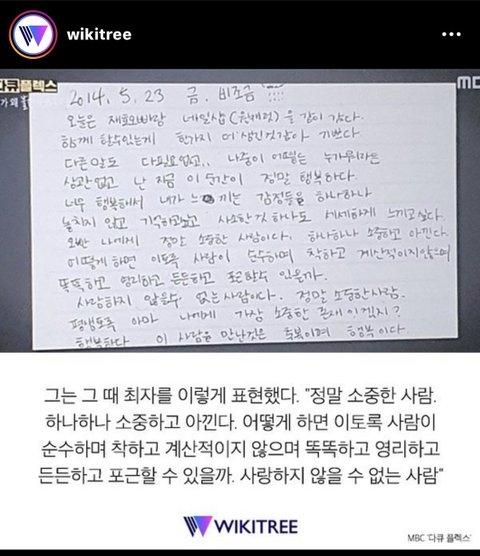 wikitree
다큐플렉스
MBC
2014. 5. 23 금. 비조금
오늘은 재호오빠랑 네일샵 (원재형) 을 같이 갔다.
함께 할수있는게 한가지 더 생긴것같아 기쁘다
다른말도 다필요없고.. 나중이 어떻든 누가뭐라든
상관없고 난 지금 이 순간이 정말 행복하다.
너무 행복해서 내가 느끼는 감정들을 하나하나
놓치지 않고 기억하고싶고 사소한것 하나도 세세하게 느끼고 싶다.
오빤 나에게 정말 소중한 사람이다. 하나하나 소중하고 아낀다.
어떻게 하면 이토록 사람이 순수하며 착하고 계산적이지않으며
똑똑하고 영리하고 든든하고 포근할수 있을까.
사랑하지 않을수 없는사람이다. 정말 소중한사람.
평생토록 아마 나에게 가장 소중한 존재이겠지?
행복하다 이 사람을 만난것은 축복이며 행복이다.
그는 그 때 최자를 이렇게 표현했다. "정말 소중한 사람.
하나하나 소중하고 아낀다. 어떻게 하면 이토록 사람이
순수하며 착하고 계산적이지 않으며 똑똑하고 영리하고
든든하고 포근할 수 있을까. 사랑하지 않을 수 없는 사람"
WIKITREE
MBC '다큐 플렉스'